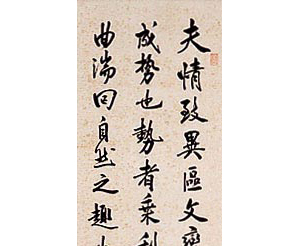 夫情致異區文變
成势也勢者乘利
曲湍回自然之趣